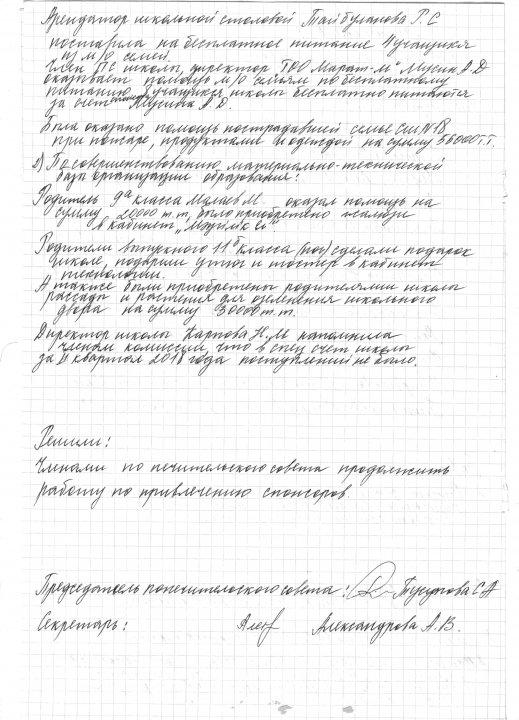 Арендатор школьной столовой Тайбуланова Р.С
поставила на бесплатное питание 4 учащихся
из м/о семей.
Член ПС школы, директор ТОО "Марат-М" Мусин А.Д
оказывает помощь м/о семьям по бесплатному
питанию, учащихся школы бесплатно питаются
за счет Мусина А.Д.
Была оказано помощь пострадавшей семье СШ №18
при пожаре, продуктами и одеждой на сумму 56000 т.т.
2) По совершенствованию материально-технической
базы организации образования:
Родитель 9а класса Мулаев М. оказал помощь на
сумму 20000 т.т, было приобретено жалюзи
в кабинет
Родители выпускного 11б класса сделали подарок
школе, подарили утюг и тостер в кабинет
технологии.
А также были приобретены родителями школы
рассады и растения для озеленения школьного
двора на сумму 30000 т.т.
Директор школы Карпова Н.М напомнила
членам комиссии, что в спец счет школы
за II квартал 2018 года поступлений не было.
Решили:
Членами по печительского совета продолжить
работу по привлечению спонсоров
Председатель попечительского совета: Тусупова С А
Секретарь: Александрова А.В.